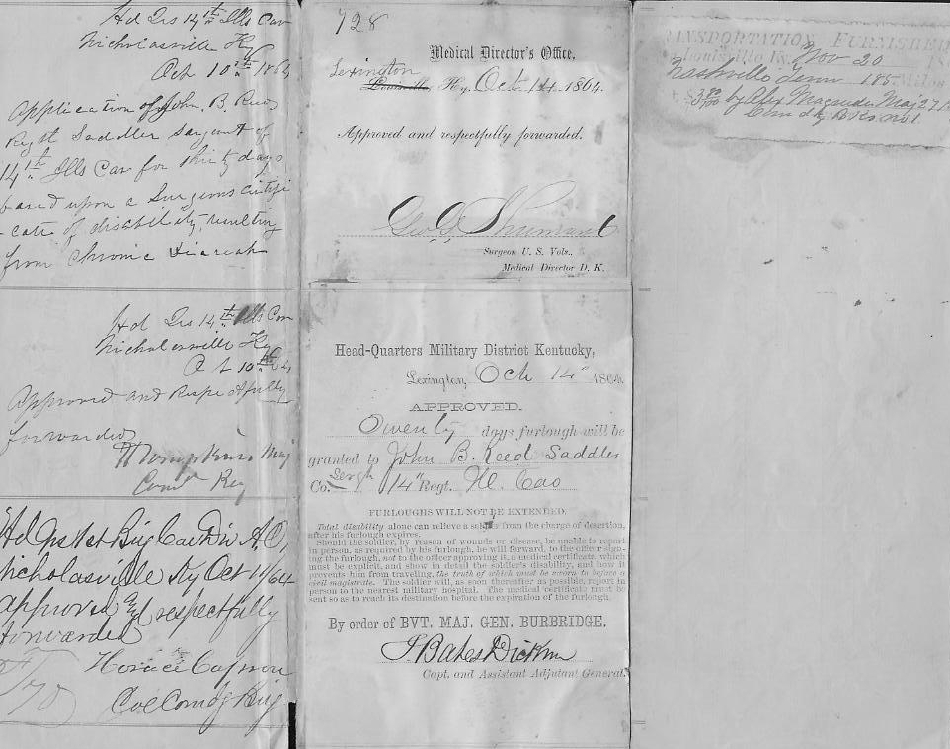 Hd Qrs 14th Ills Cav
Nicholasville Ky
Oct 10th 1864
Application of John B Reed
Regt Saddler Sargant of
14th Ills Cav for thirty days
based upon a Surgeons certifi
-cate of disability, resulting
from Chronic Diareah
Hd Qrs 14th Ills Cav
Nicholasville Ky
Oct 10th 64
Approved and respectfully
forwarded
Maj
Comd Reg
Hd Qrs 1st Brig Cav Div A.O.
Nicholasville Ky Oct 11/64
approved and respectfully
forwarded
Horace Capron
Col Comdg Brig
728
Medical Director's Office,
Lexington
Louisville, Ky, Oct 14 1864.
Approved and respectfully forwarded.
Geo. Shumard
Surgeon U. S. Vols.,
Medical Director D. K.
Head-Quarters Military District Kentucky,
Lexington, Oct 14" 1864.
APPROVED.
Twenty days furlough will be
granted to John B. Reed Saddler
Sergt
Co. 14" Regt. Ill. Cav
FURLOUGHS WILL NOT BE EXTENDED.
Total disability alone can relieve a soldier from the charge of desertion,
after his furlough expires.
Should the soldier, by reason of wounds or disease, be unable to report
in person, as required by his furlough, he will forward, to the officer sign-
ing the furlough, not to the officer approving it, a medical certificate, which
must be explicit, and show in detail the soldier's disability, and how it
prevents him from traveling, the truth of which must be sworn to before a
civil magistrate. The soldier will, as soon thereafter as possible, report in
person to the nearest military hospital. The medical certificate must be
sent so as to reach its destination before the expiration of the furlough.
By order of BVT. MAJ. GEN. BURBRIDGE.
J Bates Dickson
Capt. and Assistant Adjutant General.
ANSPORTATION FURNISHED
Louisville Ky. Nov 20 186
Nashville Tenn 185 Miles
by Alex Magruder Maj 27